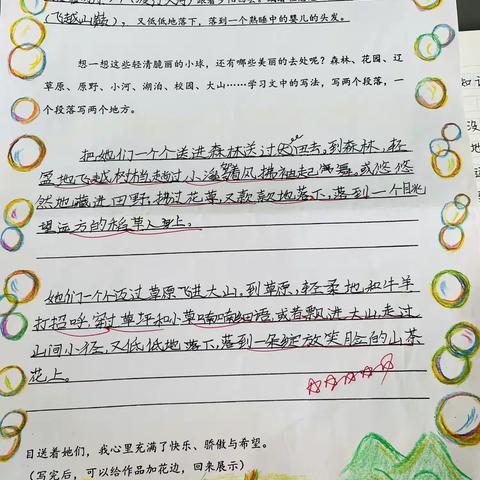 (飞越山巅),又低低地落下,落到一个熟睡中的婴儿的头发。
想一想这些轻清脆丽的小球,还有哪些美丽的去处呢?森林、花园、辽
草原、原野、小河、湖泊、校园、大山……学习文中的写法,写两个段落,一
个段落写两个地方。
把她们一个个送进森林送过田去,到森林,轻
盈地飞越树梢,走过小溪,随着风拂袖起舞。或悠悠
然地藏进田野,拂过花草,又款款地落下,落到一个目光
望远方的稻草人身上。
她们一个个迈过草原飞进大山。到草原,轻柔地和牛羊
打招呼,穿过草坪和小草喃喃细语,或者飘进大山,走过
山间小径,又低低地落下,落到一朵绽放笑脸的山茶
花上。
目送着她们,我心里充满了快乐、骄傲与希望。
(写完后,可以给作品加花边,回来展示)